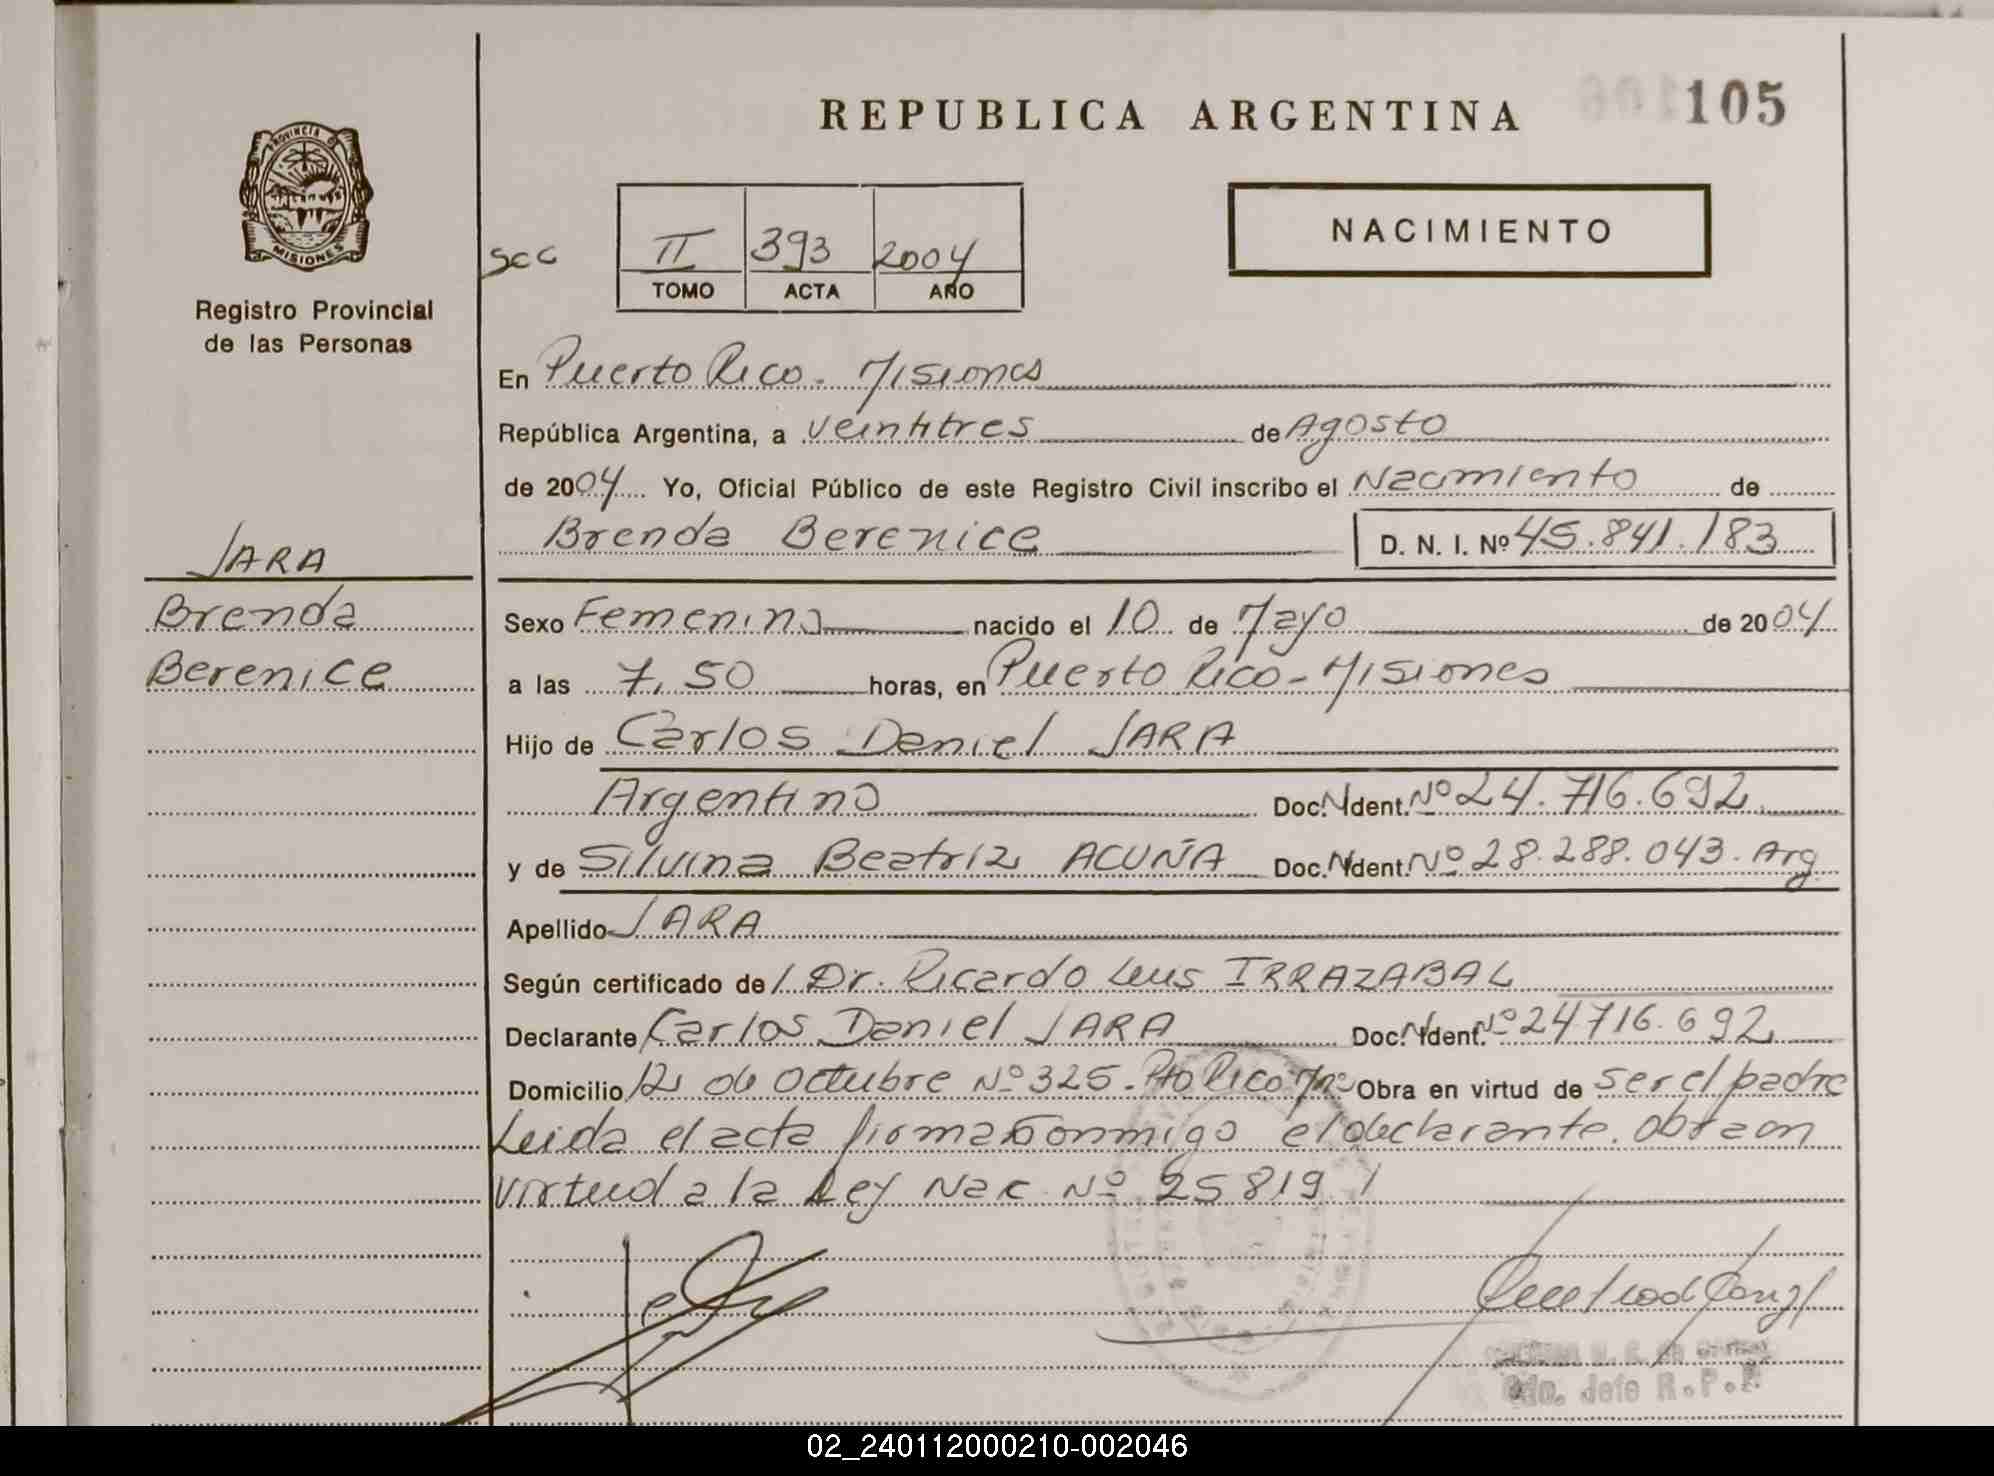 REPUBLICA ARGENTINA
105
PROVINCIA
MISIONES
Registro Provincial
de las Personas
Scc
II 393 2004
TOMO ACTA AÑO
NACIMIENTO
En Puerto Rico - Misiones
República Argentina, a veintitres de Agosto
de 2004 Yo, Oficial Público de este Registro Civil inscribo el Nacimiento de
Brenda Berenice D. N. I. Nº 45.841.183
JARA
Brenda
Berenice
Sexo Femenino nacido el 10 de Mayo de 2004
a las 7,50 horas, en Puerto Rico - Misiones
Hijo de Carlos Daniel JARA
Argentino Doc. N Ident. Nº 24.716.692
y de Silvina Beatriz ACUÑA Doc. N Ident. Nº 28.288.043. Arg
Apellido JARA
Según certificado del Dr. Ricardo Luis IRRAZABAL
Declarante Carlos Daniel JARA Doc. N Ident. Nº 24716.692
Domicilio 12 de Octubre Nº 325. Pto Rico Mnes Obra en virtud de ser el padre
Leida el acta firma conmigo el declarante. Obra en
virtud a la Ley Nac Nº 25819
Jefe R.P.P.
02_240112000210-002046